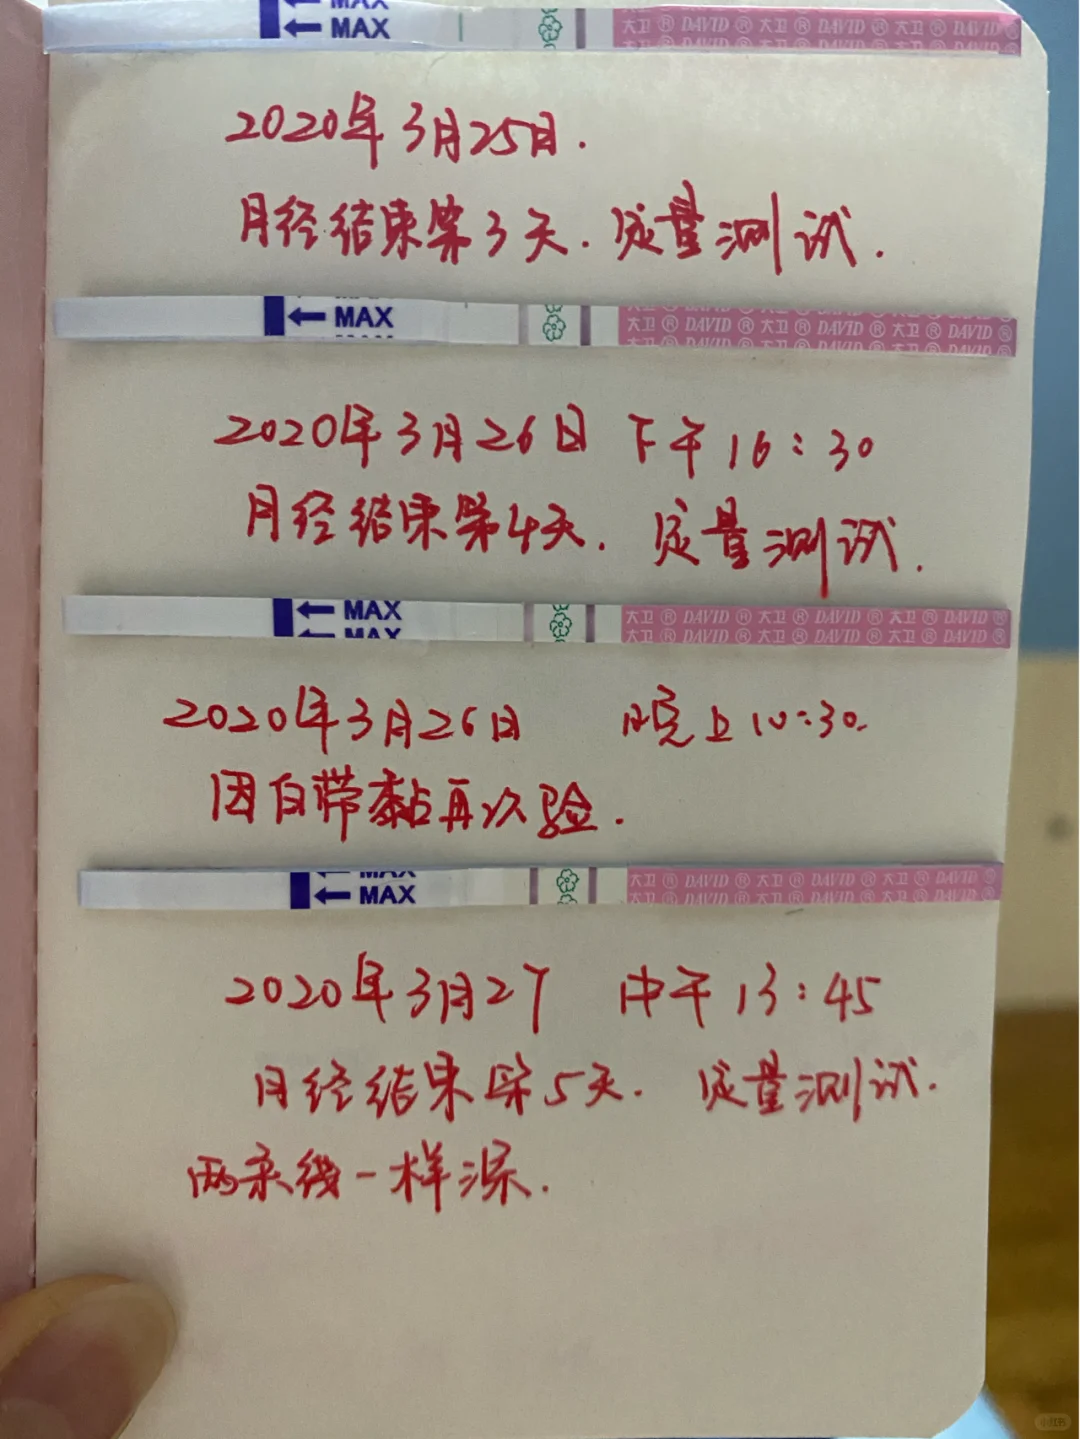 MAX
MAX
大卫 ® DAVID ® 大卫 ® DAVID ® 大卫 ® DAVID ®
2020年3月25日.
月经结束第3天. 定量测试.
MAX
大卫 ® DAVID ® 大卫 ® DAVID ® 大卫 ® DAVID ®
2020年3月26日 下午16:30
月经结束第4天. 定量测试.
MAX
MAX
大卫 ® DAVID ® 大卫 ® DAVID ® 大卫 ® DAVID ®
大卫 ® DAVID ® 大卫 ® DAVID ® 大卫 ® DAVID ®
2020年3月26日 晚上10:30.
因白带黏再次验.
MAX
MAX
大卫 ® DAVID ® 大卫 ® DAVID ® 大卫 ® DAVID ®
大卫 ® DAVID ® 大卫 ® DAVID ® 大卫 ® DAVID ®
2020年3月27 中午13:45
月经结束第5天. 定量测试.
两条线一样深.
小红书